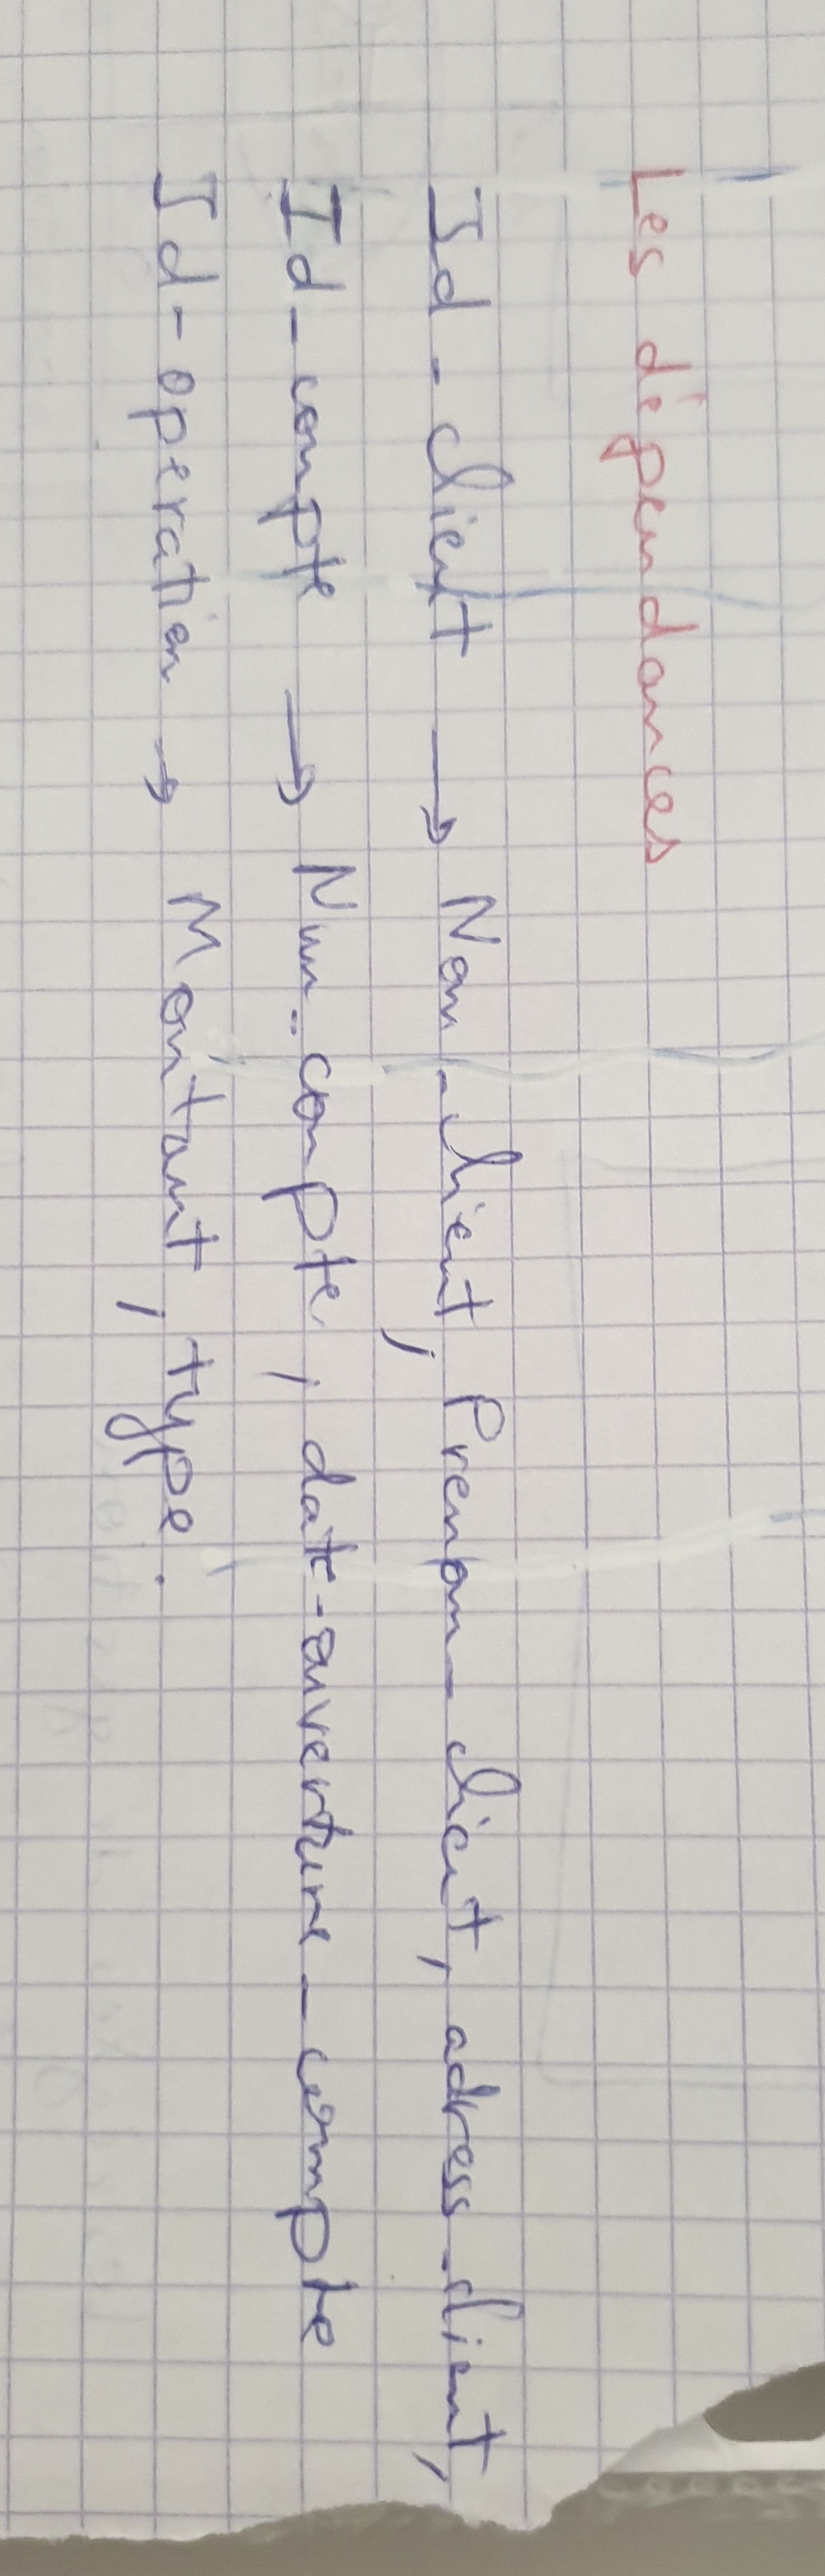 Les dépendances
Id-client → Nom-client, Prenom-client, adress-client,
Id-compte → Num-compte, date-ouverture-compte
Id-operation → Montant, type.